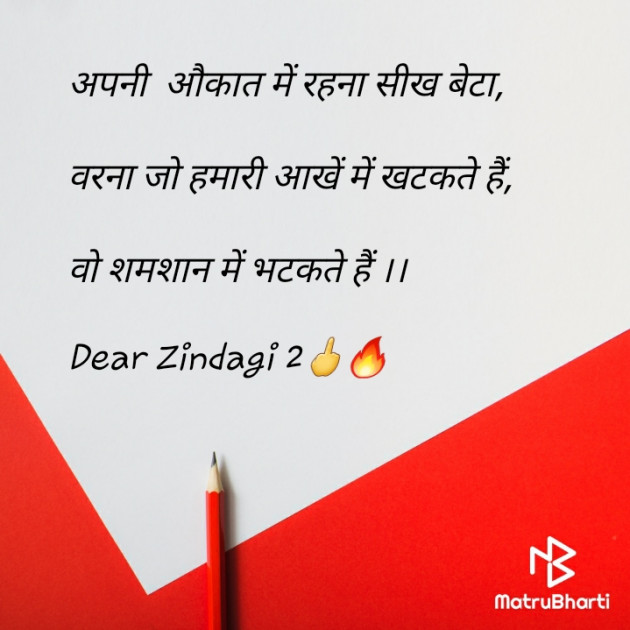 अपनी  औकात में रहना सीख बेटा,
वरना जो हमारी आखें में खटकते हैं,
वो शमशान में भटकते हैं ।।
Dear Zindagi 2🖕🔥
MatruBharti